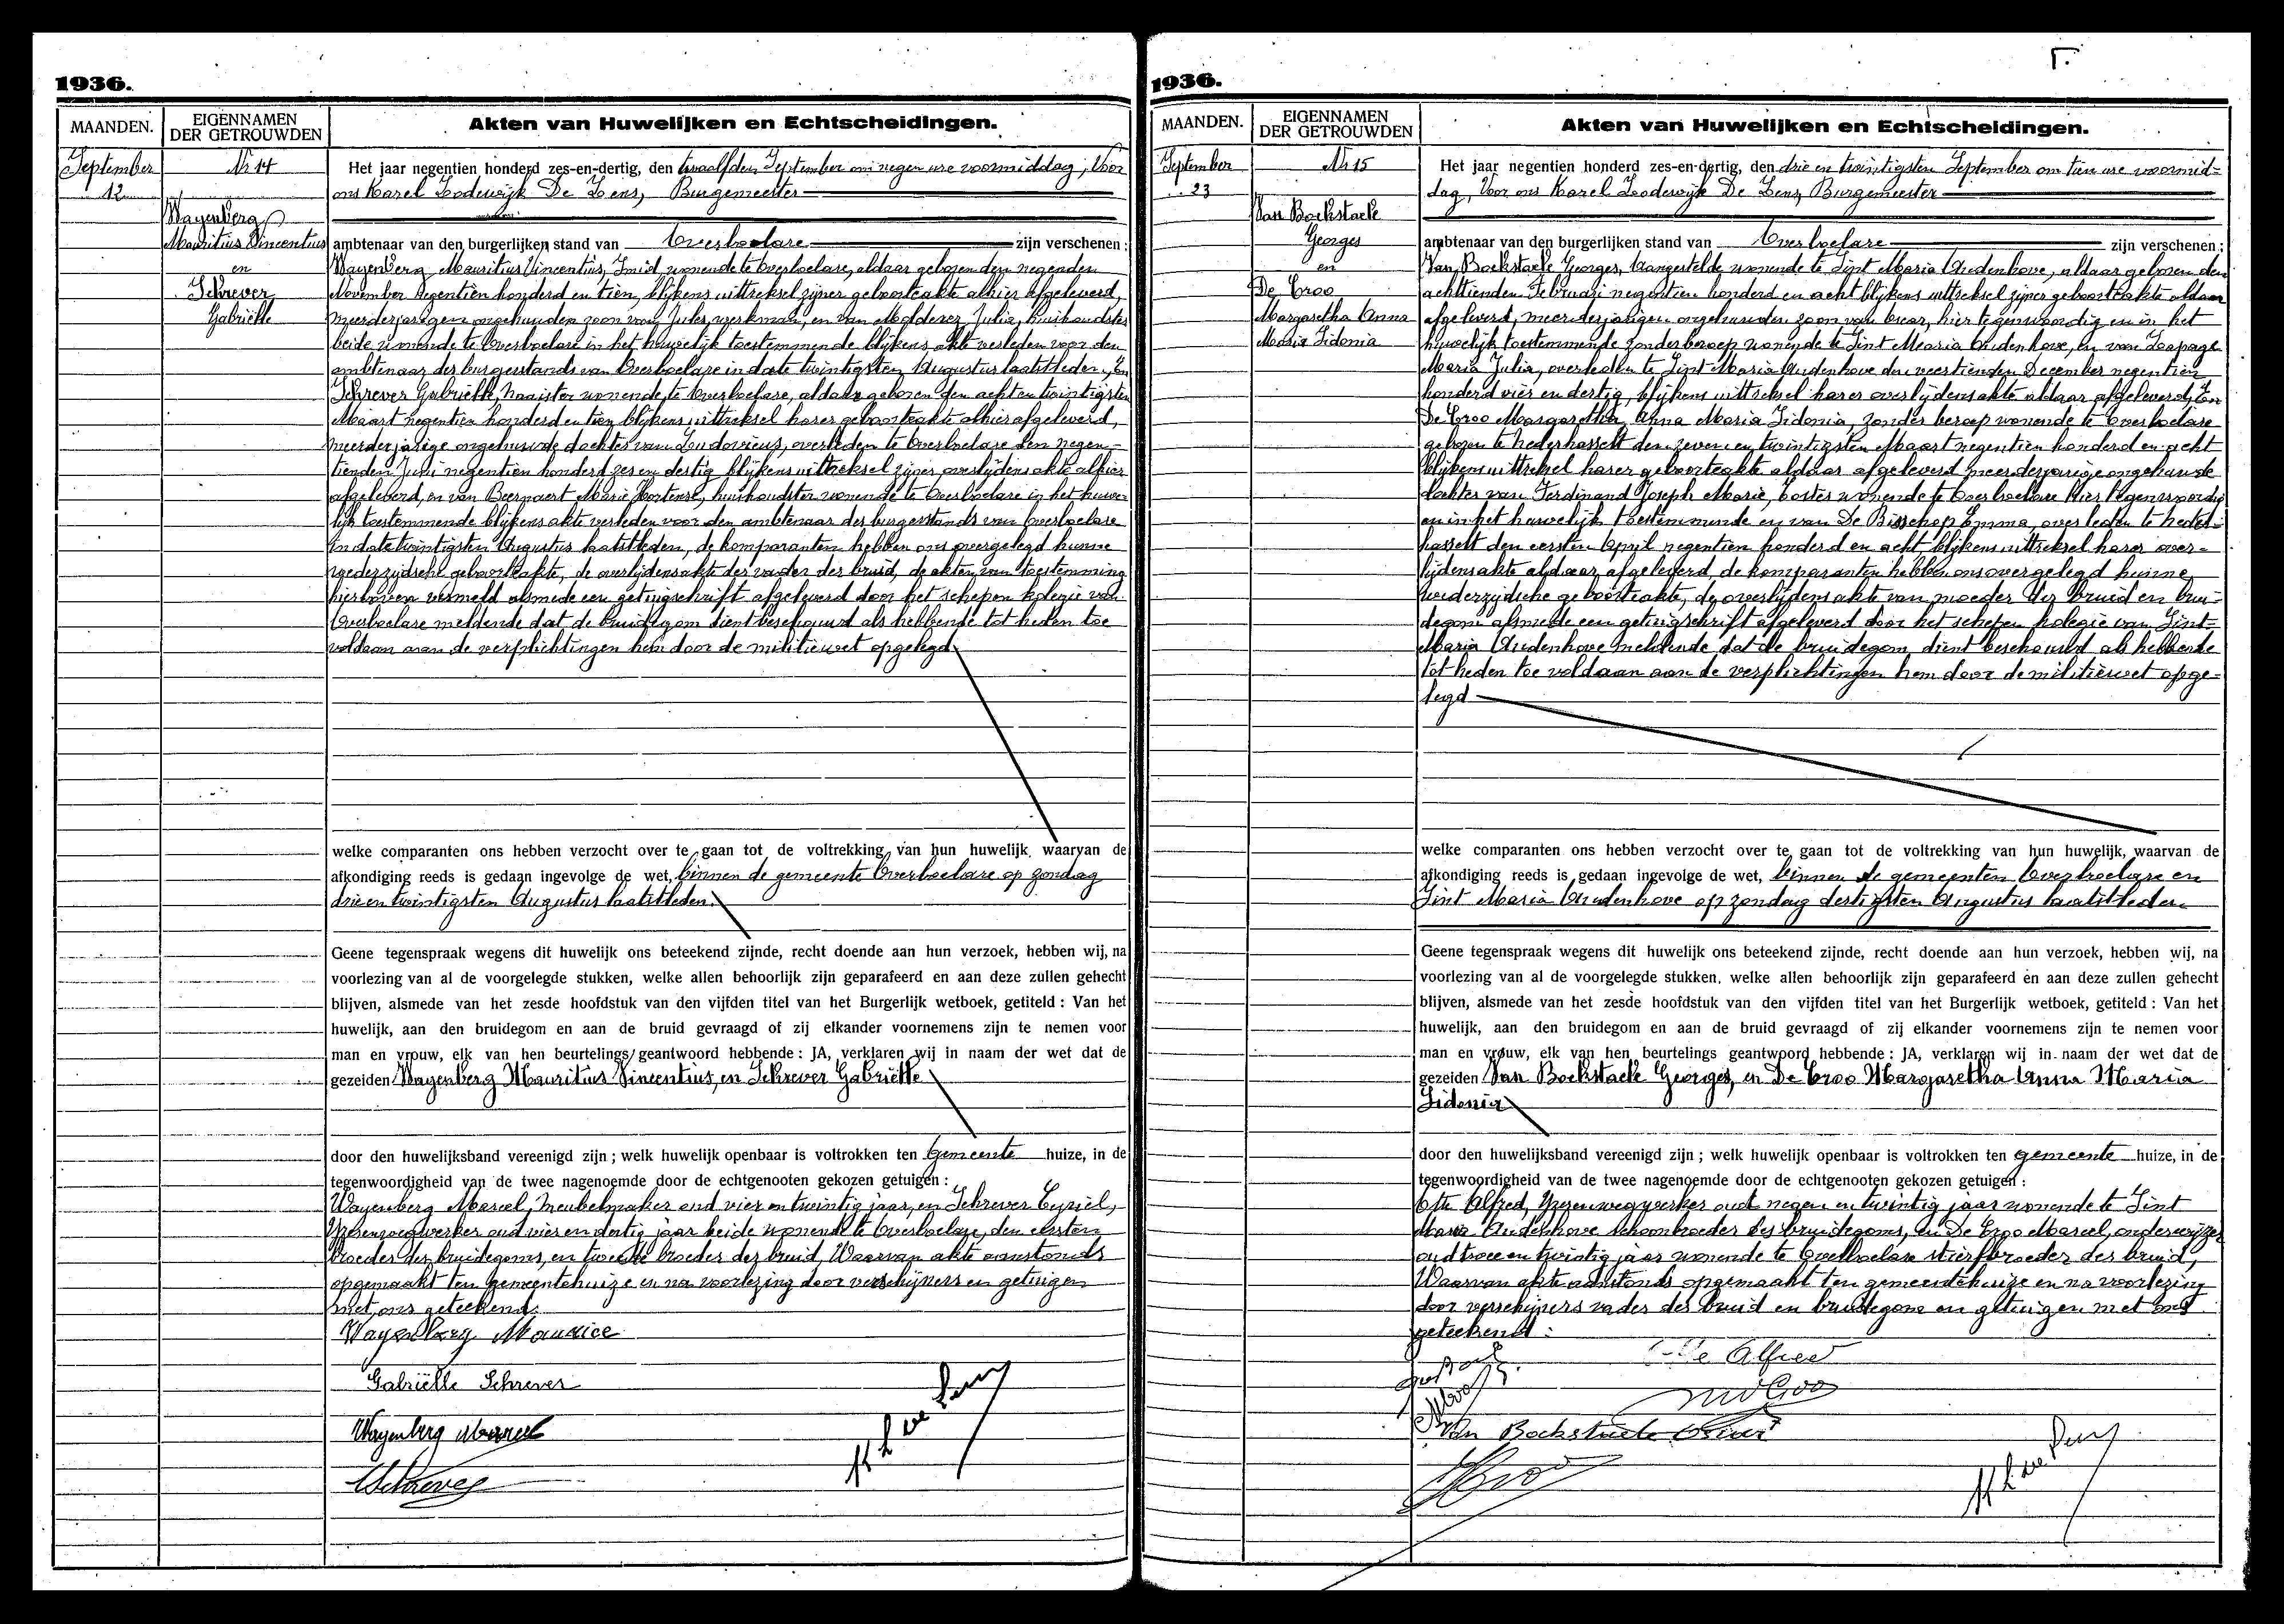 1936.
MAANDEN.
EIGENNAMEN
DER GETROUWDEN
Akten van Huwelijken en Echtscheidingen.
September
12
Nr 14
Wayenberg
Mauritius Vincentius
en
Schrever
Gabriëlle
Het jaar negentien honderd zes-en-dertig, den twaalfden September om negen ure voormiddag, Voor
ons Karel Lodewijk De Lens, Burgemeester
ambtenaar van den burgerlijken stand van Overboelare zijn verschenen :
Wayenberg Mauritius Vincentius, Smid, wonende te Overboelare, aldaar geboren den negenden
November negentien honderd en tien, blijkens uittreksel zijner geboorteakte alhier afgeleverd,
meerderjarigen ongehuwden zoon van Jules, werkman, en van Molderez Julia, huishoudster
beide wonende te Overboelare in het huwelijk toestemmende blijkens akte verleden voor den
ambtenaar des burgerstands van Overboelare in date twintigsten Augustus laatstleden, En
Schrever Gabriëlle, naaister wonende te Overboelare, aldaar geboren den acht en twintigsten
Maart negentien honderd en tien blijkens uittreksel harer geboorteakte alhier afgeleverd,
meerderjarige ongehuwde dochter van Ludovicus, overleden te Overboelare den negen-
tienden Juni negentien honderd zes en dertig blijkens uittreksel zijner overlijdensakte alhier
afgeleverd, en van Beernaert Marie Hortense, huishoudster wonende te Overboelare in het huwe-
lijk toestemmende blijkens akte verleden voor den ambtenaar des burgerstands van Overboelare
in date twintigsten Augustus laatstleden, de komparanten hebben ons overgelegd hunne
wederzydsche geboorteakte, de overlijdensakte der vader der bruid, de akten van toestemming
hierboven vermeld alsmede een getuigschrift afgeleverd door het schepen kolegie van
Overboelare meldende dat de bruidegom dient beschouwd als hebbende tot heden toe
voldaan aan de verplichtingen hem door de militiewet opgelegd
welke comparanten ons hebben verzocht over te gaan tot de voltrekking van hun huwelijk, waarvan de
afkondiging reeds is gedaan ingevolge de wet, binnen de gemeente Overboelare op zondag
drie en twintigsten Augustus laatstleden.
Geene tegenspraak wegens dit huwelijk ons beteekend zijnde, recht doende aan hun verzoek, hebben wij, na
voorlezing van al de voorgelegde stukken, welke allen behoorlijk zijn geparafeerd en aan deze zullen gehecht
blijven, alsmede van het zesde hoofdstuk van den vijfden titel van het Burgerlijk wetboek, getiteld : Van het
huwelijk, aan den bruidegom en aan de bruid gevraagd of zij elkander voornemens zijn te nemen voor
man en vrouw, elk van hen beurtelings geantwoord hebbende : JA, verklaren wij in naam der wet dat de
gezeiden Wayenberg Mauritius Vincentius, en Schrever Gabriëlle
door den huwelijksband vereenigd zijn ; welk huwelijk openbaar is voltrokken ten Gemeente huize, in de
tegenwoordigheid van de twee nagenoemde door de echtgenooten gekozen getuigen :
Wayenberg Marcel, Meubelmaker oud vier en twintig jaar, en Schrever Cyriel,
Yzerenwegwerker oud vier en dertig jaar beide wonende te Overboelare, den eersten
broeder des bruidegoms, en tweede broeder der bruid, Waarvan akte aanstonds
opgemaakt ten gemeentehuize en na voorlezing door verschijners en getuigen
met ons geteekend.
Wayenberg Maurice
Gabriëlle Schrever
Wayenberg Marcel
CSchrever
K L De Lens
1936.
MAANDEN.
EIGENNAMEN
DER GETROUWDEN
Akten van Huwelijken en Echtscheidingen.
September
23
Nr 15
Van Bockstaele
Georges
en
De Croo
Margaretha Anna
Maria Sidonia
Het jaar negentien honderd zes-en-dertig, den drie en twintigsten September om tien ure voormid-
dag, Voor ons Karel Lodewijk De Lens, Burgemeester
ambtenaar van den burgerlijken stand van Overboelare zijn verschenen :
Van Bockstaele Georges, Aangestelde wonende te Sint Maria Audenhove, aldaar geboren den
achttienden Februari negentien honderd en acht blijkens uittreksel zijner geboorteakte aldaar
afgeleverd, meerderjarigen ongehuwden zoon van Oscar, hier tegenwoordig en in het
huwelijk toestemmende zonder beroep wonende te Sint Maria Audenhove, en van Lepage
Maria Julia, overleden te Sint Maria Audenhove den veertienden December negentien
honderd vier en dertig, blijkens uittreksel harer overlijdensakte aldaar afgeleverd, En
De Croo Margaretha Anna Maria Sidonia, zonder beroep wonende te Overboelare
geboren te Nederhasselt den zeven en twintigsten Maart negentien honderd en acht
blijkens uittreksel harer geboorteakte aldaar afgeleverd, meerderjarige ongehuwde
dochter van Ferdinand Joseph Marie, Koster wonende te Overboelare hier tegenwoordig
en in het huwelijk toestemmende en van De Bisschop Emma, overleden te Neder-
hasselt den eersten April negentien honderd en acht, blijkens uittreksel harer over-
lijdensakte aldaar afgeleverd, de komparanten hebben ons overgelegd hunne
wederzydsche geboorteakte, de overlijdensakte van moeder der bruid en brui-
degom alsmede een getuigschrift afgeleverd door het schepen kolegie van Sint-
Maria Audenhove meldende dat de bruidegom dient beschouwd als hebbende
tot heden toe voldaan aan de verplichtingen hem door de militiewet opge-
legd
welke comparanten ons hebben verzocht over te gaan tot de voltrekking van hun huwelijk, waarvan de
afkondiging reeds is gedaan ingevolge de wet, binnen de gemeenten Overboelare en
Sint Maria Audenhove op zondag dertigsten Augustus laatstleden
Geene tegenspraak wegens dit huwelijk ons beteekend zijnde, recht doende aan hun verzoek, hebben wij, na
voorlezing van al de voorgelegde stukken, welke allen behoorlijk zijn geparafeerd en aan deze zullen gehecht
blijven, alsmede van het zesde hoofdstuk van den vijfden titel van het Burgerlijk wetboek, getiteld : Van het
huwelijk, aan den bruidegom en aan de bruid gevraagd of zij elkander voornemens zijn te nemen voor
man en vrouw, elk van hen beurtelings geantwoord hebbende : JA, verklaren wij in naam der wet dat de
gezeiden Van Bockstaele Georges, en De Croo Margaretha Anna Maria
Sidonia
door den huwelijksband vereenigd zijn ; welk huwelijk openbaar is voltrokken ten gemeente huize, in de
tegenwoordigheid van de twee nagenoemde door de echtgenooten gekozen getuigen :
Alfred, Yzerenwegwerker oud negen en twintig jaar wonende te Sint
Maria Audenhove schoonbroeder des bruidegoms, en De Croo Marcel, onderwijzer
oud twee en twintig jaar wonende te Overboelare stiefbroeder der bruid,
Waarvan akte aanstonds opgemaakt ten gemeentehuize en na voorlezing
door verschijners vader der bruid en bruidegom en getuigen met ons
geteekend :
Alfred
MDCroo
Van Bockstaele Oscar
K L De Lens